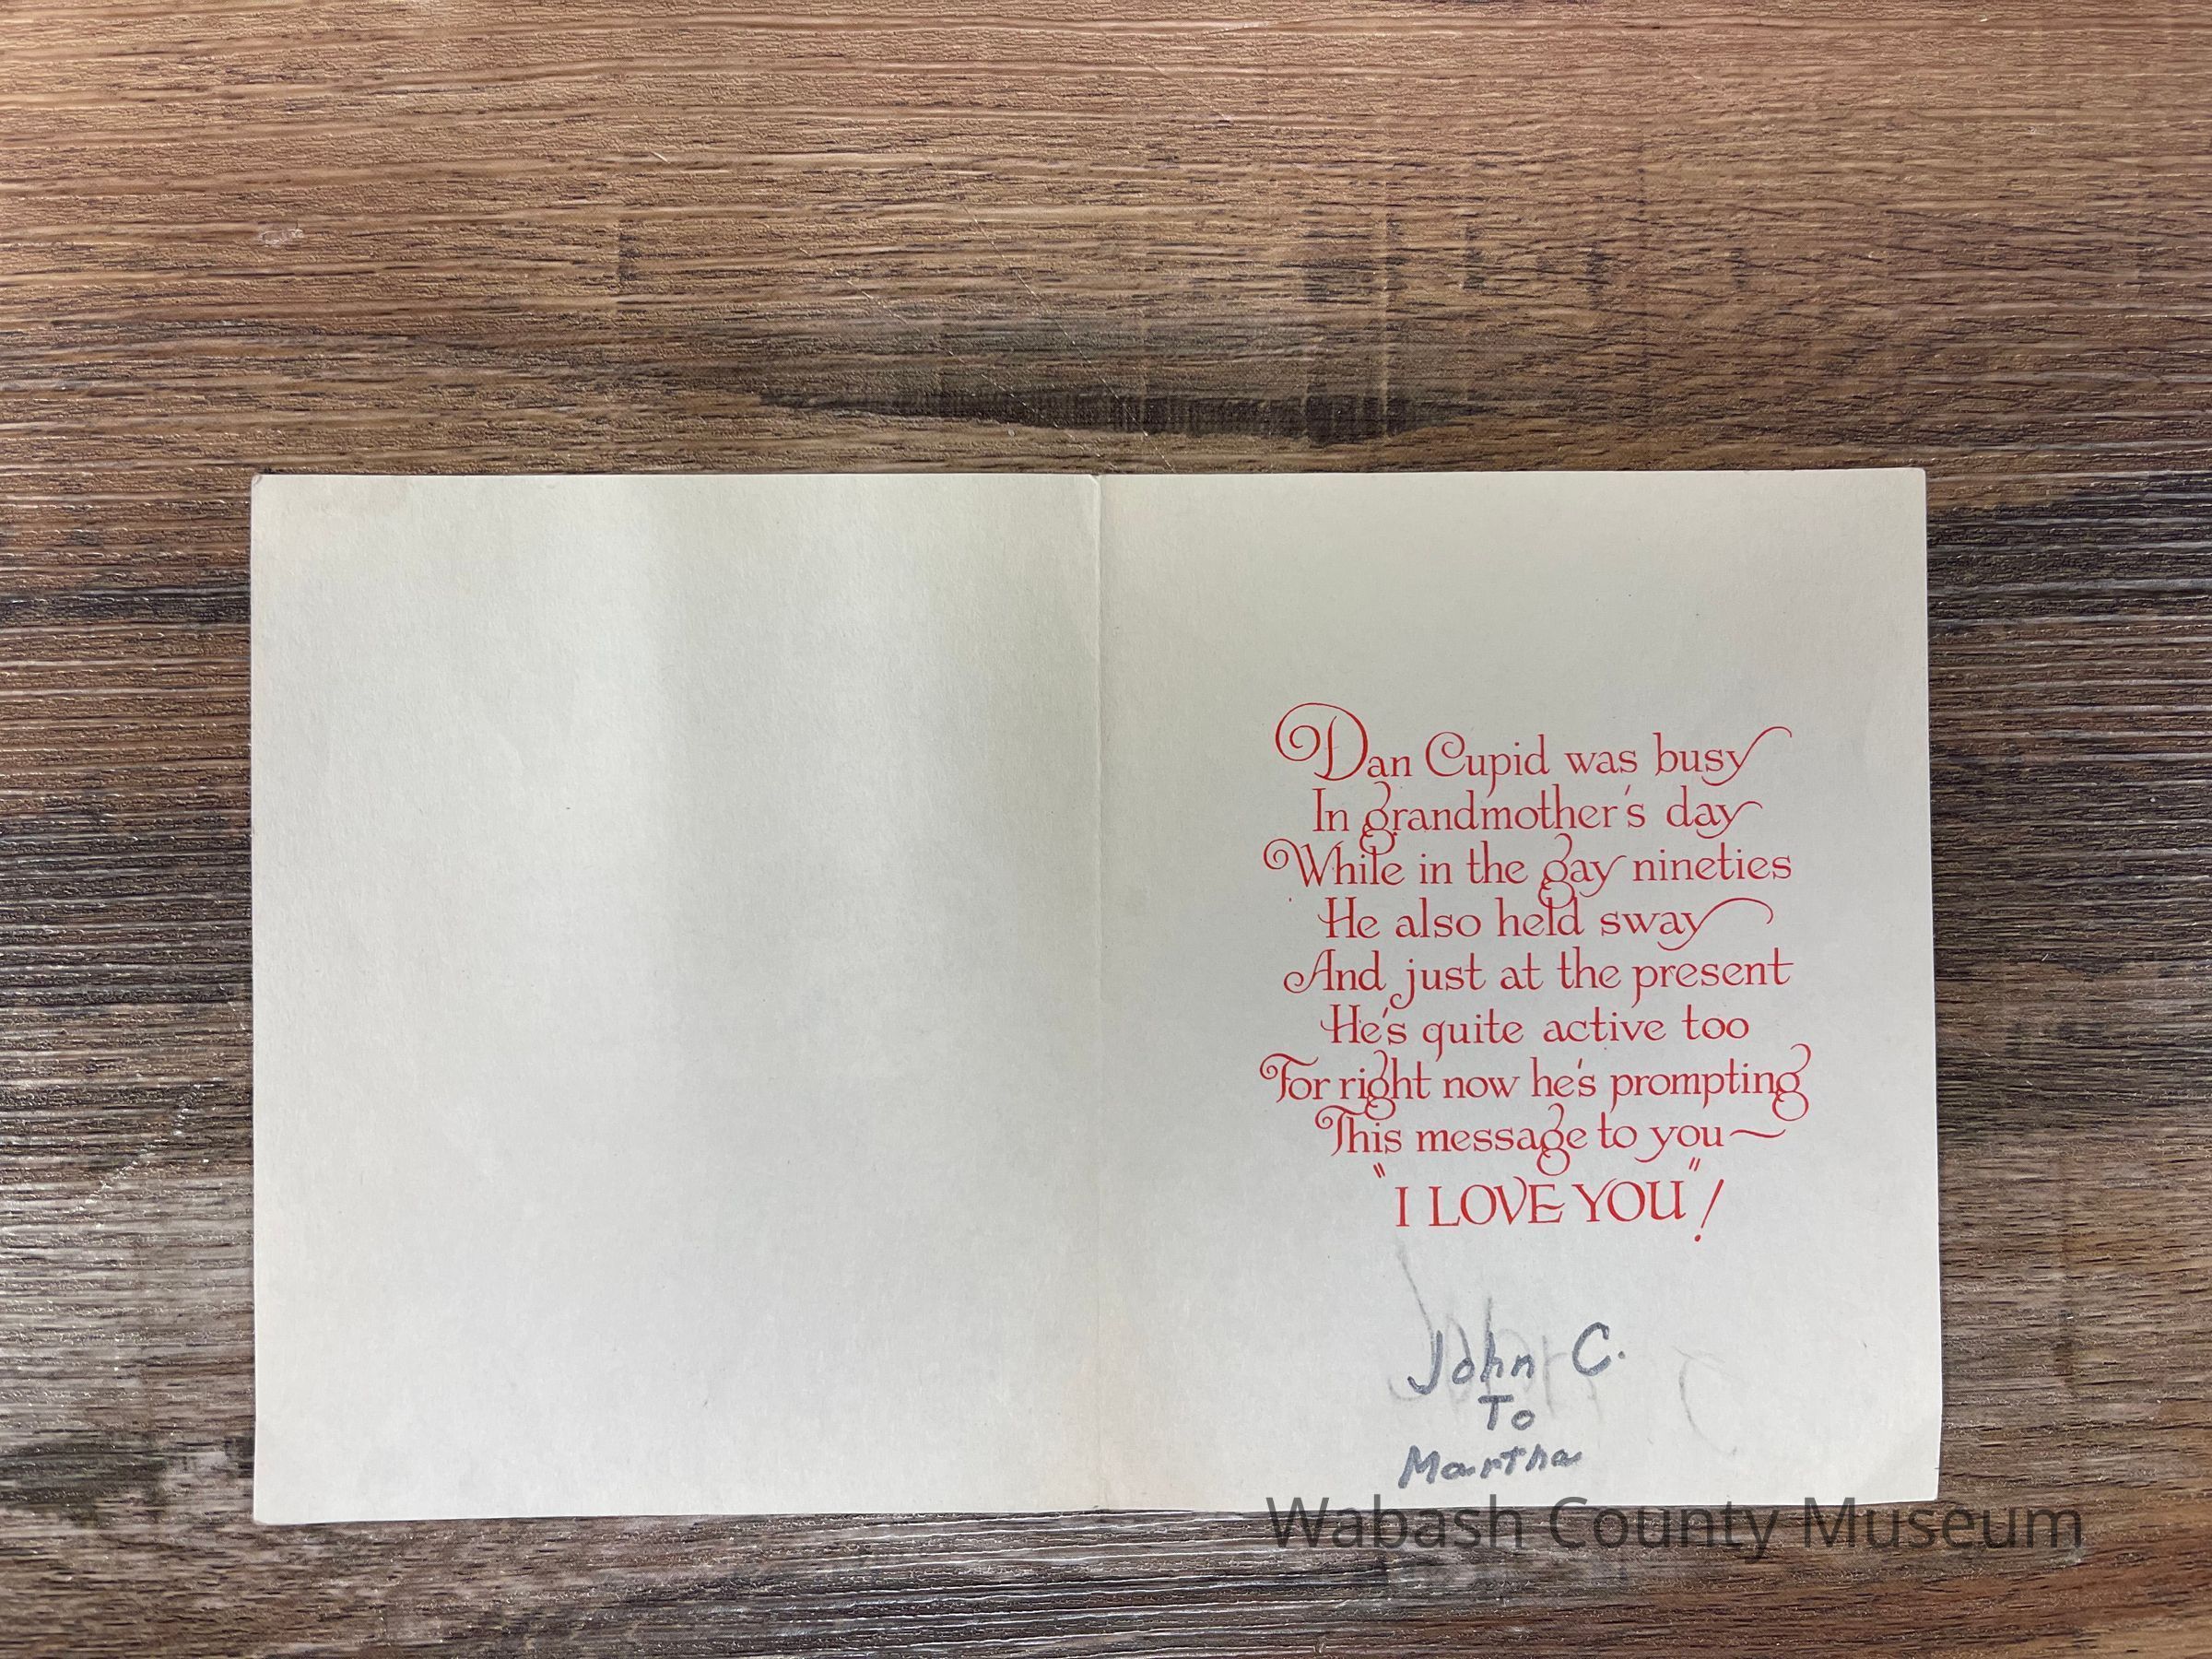 Dan Cupid was busy
In grandmother's day
While in the gay nineties
He also held sway
And just at the present
He's quite active too
For right now he's prompting
This message to you~
"I LOVE YOU"!
John C.
To
Martha
Wabash County Museum